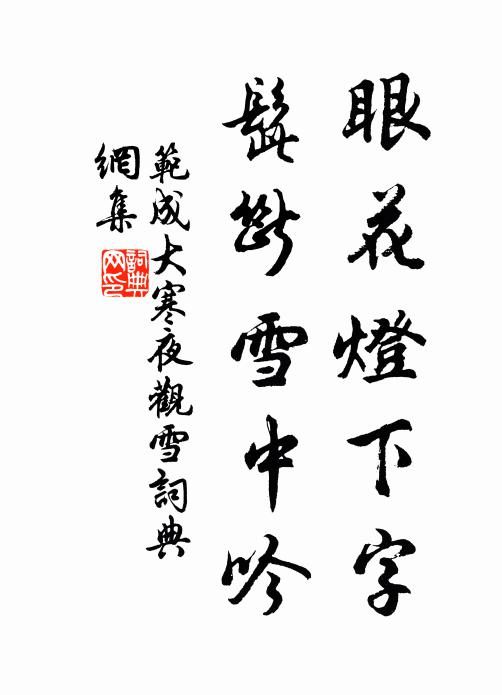 眼花燈下字
髭斷雪中吟
範成大寒夜觀雪詞典
網集
詞典
网印